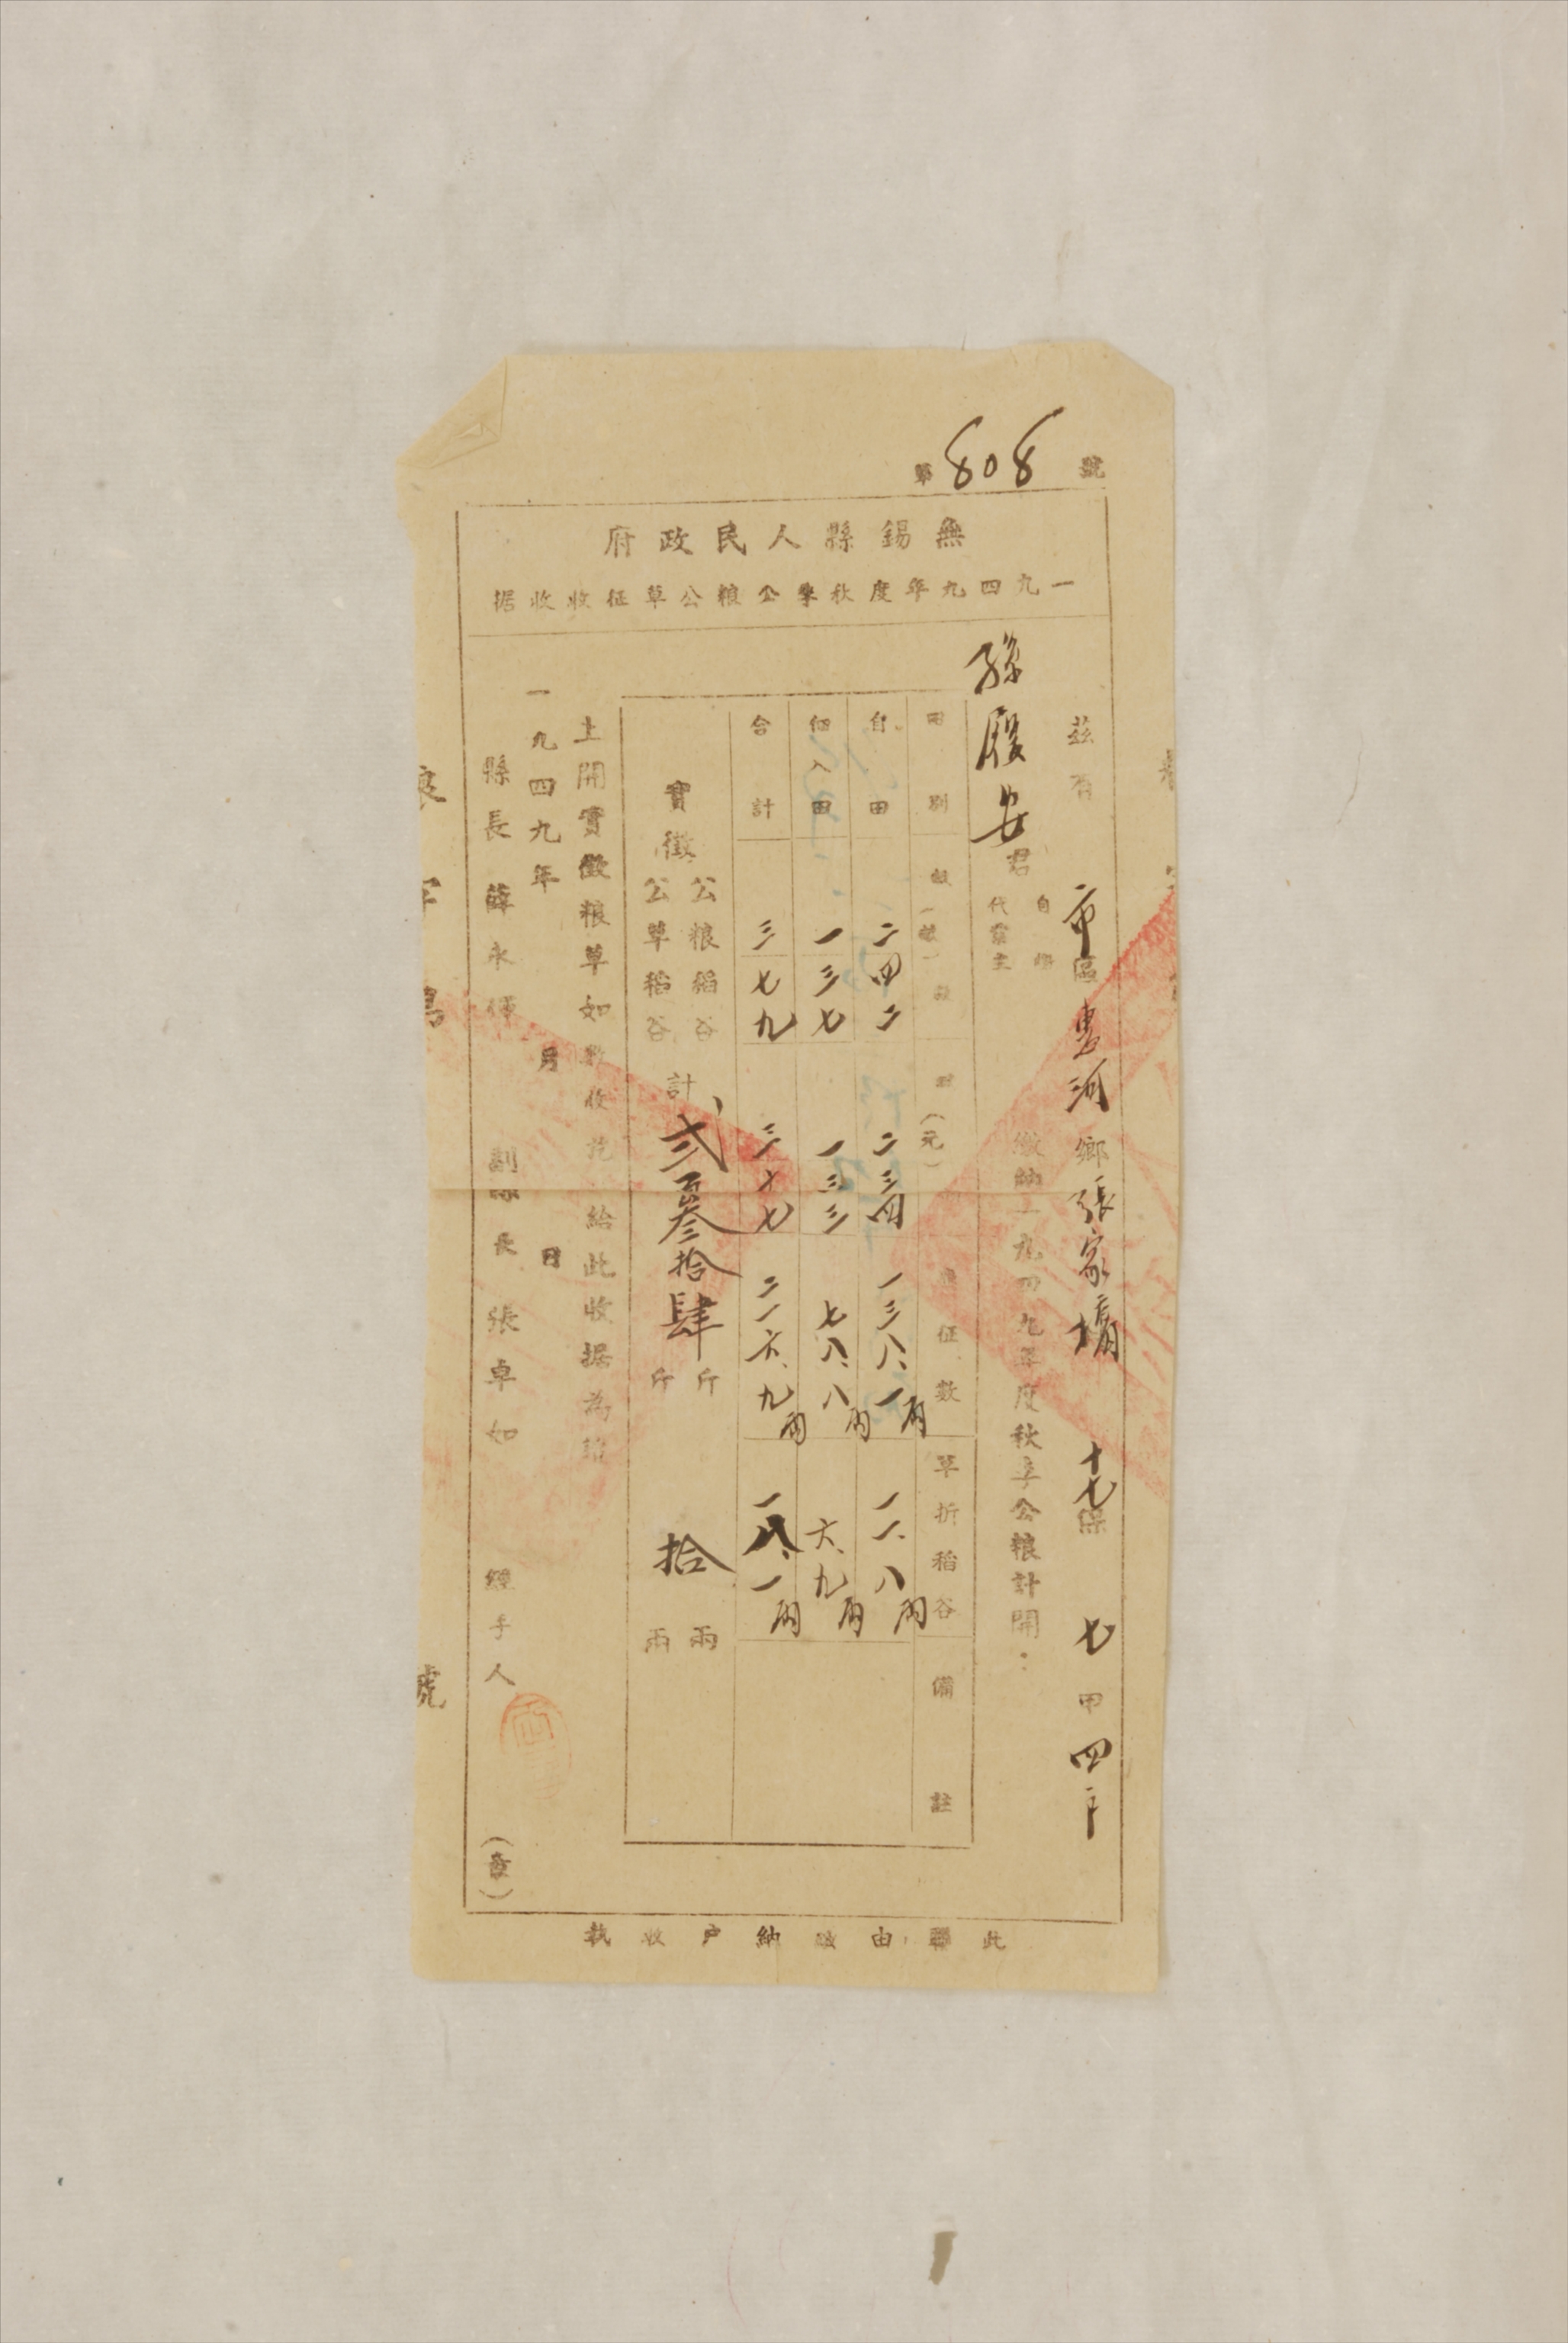 第808號
無錫縣人民政府
一九四九年度秋季公粮公草征收收据
茲有 市區惠河鄉張家橋十七保七甲四户
孫履安君 自繳 代業主 繳納一九四九年度秋季公粮計開：
田別 畝 (元) 征數 草折稻谷 備註
自田 二四二 二三四 一三八、一兩 一一、八兩
佃入田 一三七 一三三 七八、八兩 六、九兩
合計 三七九 三六七 二一六、九兩 一八、一兩
實徵 公粮稻谷 公草稻谷 計 弍百叁拾肆斤 斤 拾兩 兩
上開實徵粮草如數收訖給此收据為
一九四九年 月 日
縣長 薛永 副縣長 張卓如 經手人 (章)
此聯由繳納户收執
號